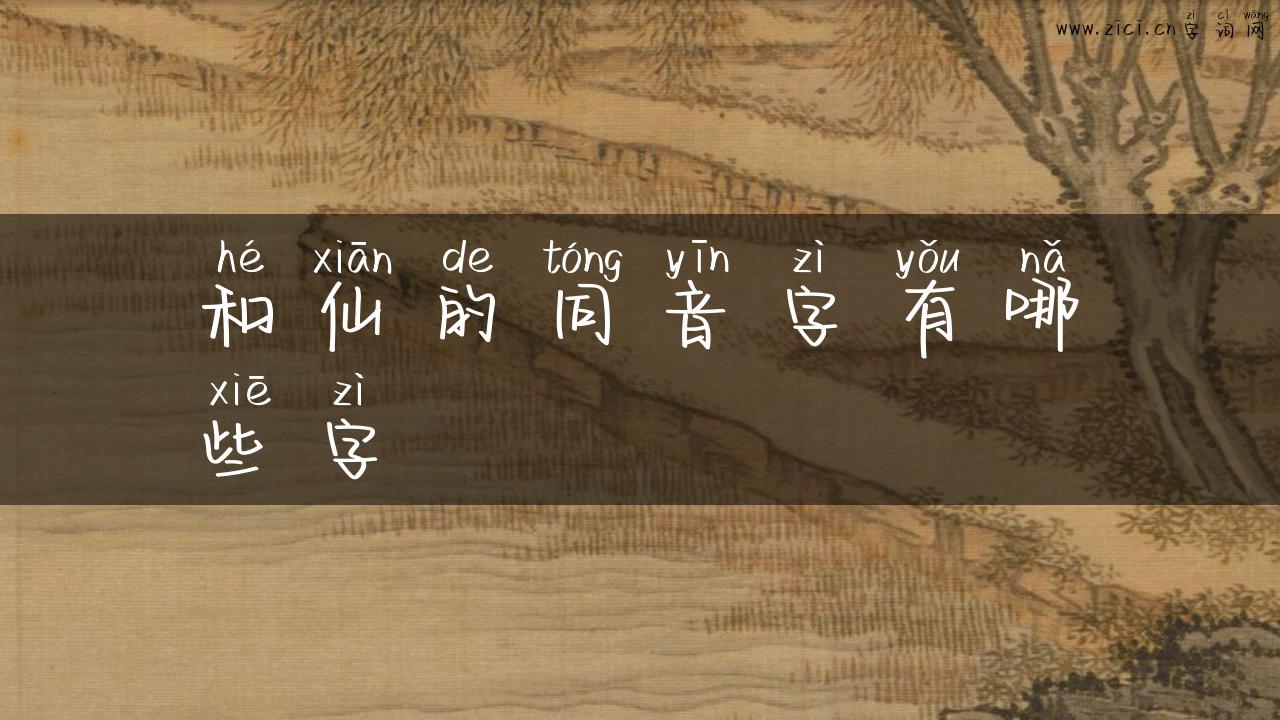 zì cí wǎng
www.zici.cn字词网
hé xiān de tóng yīn zì yǒu nǎ
和仙的同音字有哪
xiē zì
些字